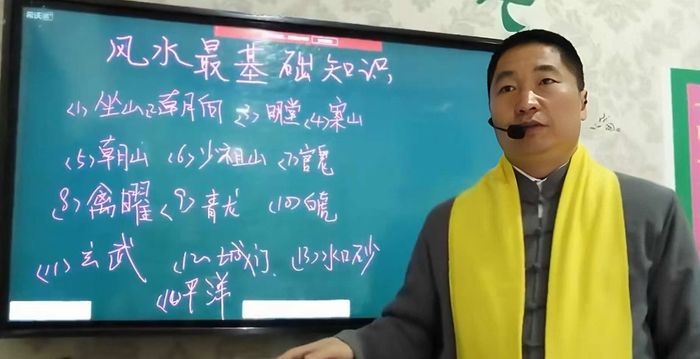 风水最基础知识
(1)坐山(2)朝向 (3)明堂(4)案山
(5)朝山 (6)少祖山 (7)官鬼
(8)禽曜 (9)青龙 (10)白虎
(11)玄武 (12)城门 (13)水口砂
(14)平洋